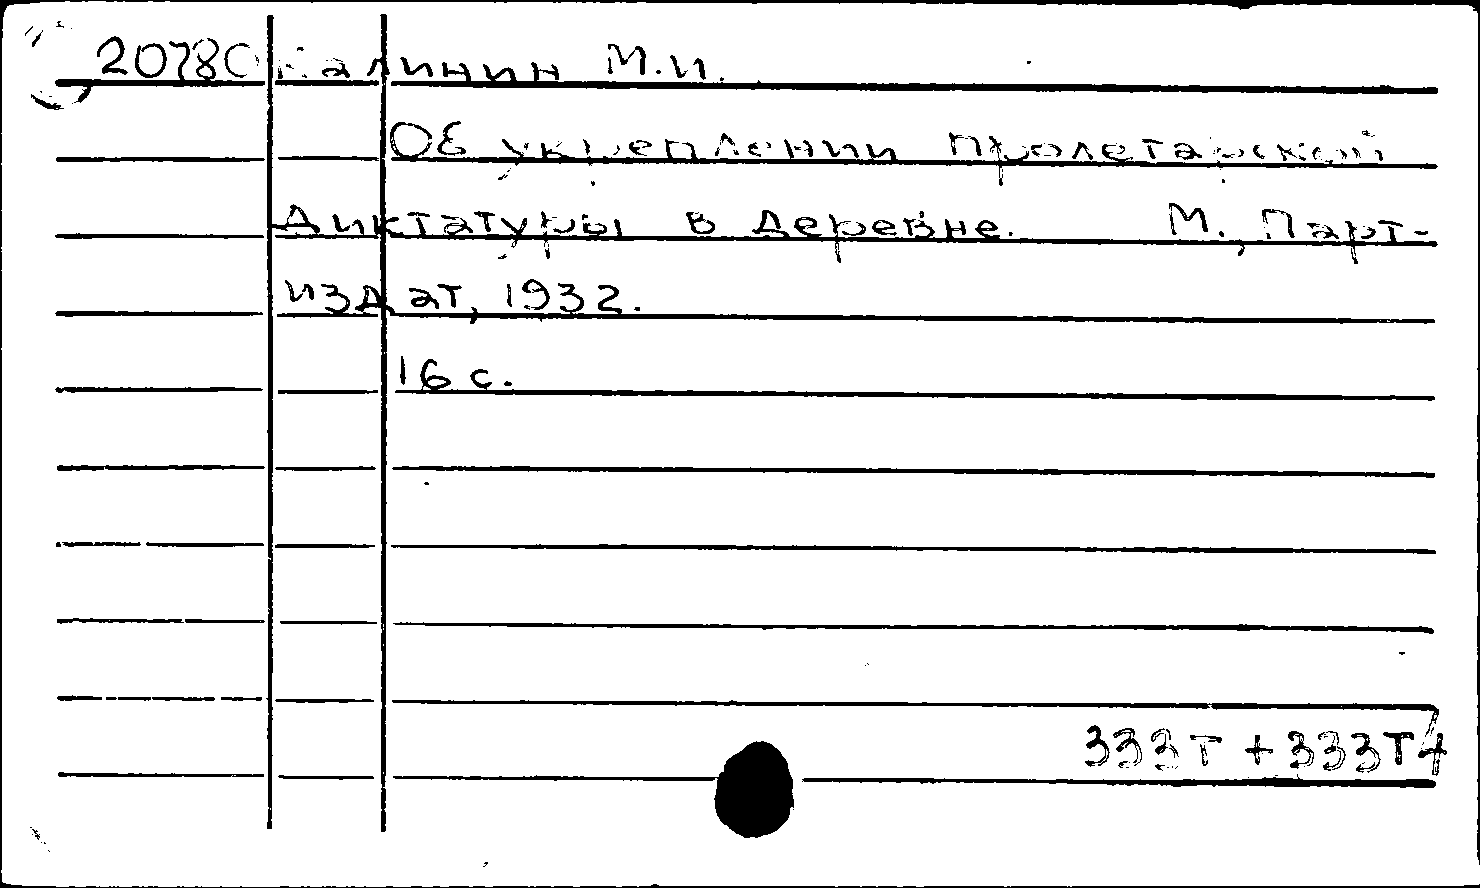 20780 Калинин М.И.
Об укреплении пролетарской
диктатуры в деревне. М., Парт-
издат, 1932.
16 с.
333Т + 333Т4